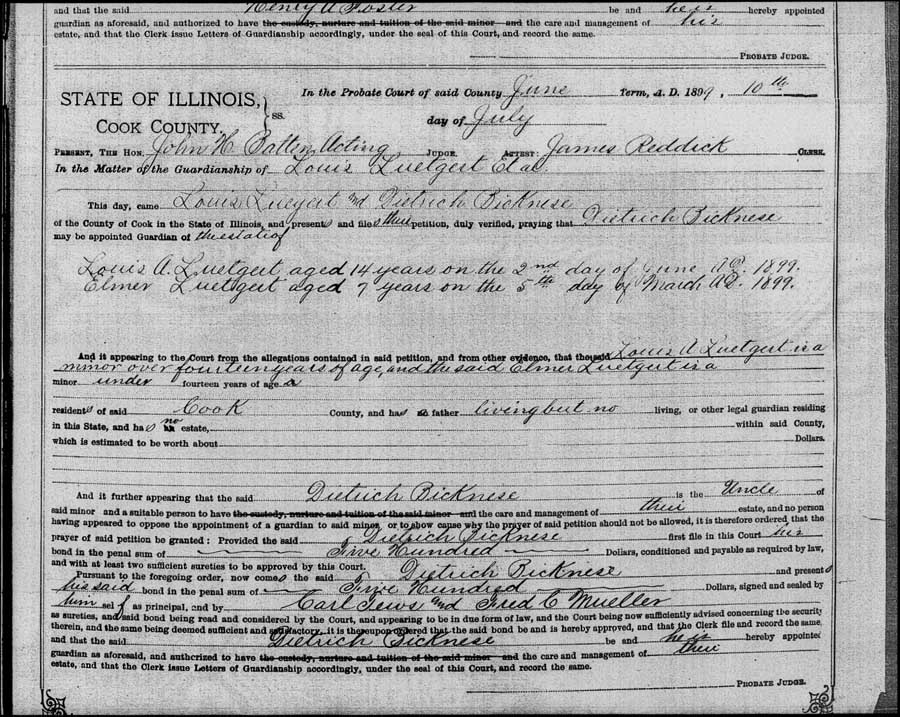 and that the said Henry A. Foster be and he is hereby appointed
guardian as aforesaid, and authorized to have the custody, nurture and tuition of the said minor and the care and management of his
estate, and that the Clerk issue Letters of Guardianship accordingly, under the seal of this Court, and record the same.
PROBATE JUDGE.
STATE OF ILLINOIS, } ss.
COOK COUNTY.
In the Probate Court of said County June Term, A. D. 1899, 10th
day of July
PRESENT, THE HON. John H Batten Acting JUDGE. ATTEST: James Reddick CLERK.
In the Matter of the Guardianship of Louis Luetgert Et al.
This day, came Louis Luetgert and Dietrich Bicknese
of the County of Cook in the State of Illinois, and presents and files their petition, duly verified, praying that Dietrich Bicknese
may be appointed Guardian of the estate of
Louis A. Luetgert aged 14 years on the 2nd day of June A.D. 1899.
Elmer Luetgert aged 7 years on the 5th day of March A.D. 1899.
And it appearing to the Court from the allegations contained in said petition, and from other evidence, that the said Louis A Luetgert is a
minor over fourteen years of age, and the said Elmer Luetgert is a
minor under fourteen years of age a
residents of said Cook County, and has no father living but no living, or other legal guardian residing
in this State, and has no estate, within said County,
which is estimated to be worth about Dollars.
And it further appearing that the said Dietrich Bicknese is the Uncle of
said minor and a suitable person to have the custody, nurture and tuition of the said minor and the care and management of their estate, and no person
having appeared to oppose the appointment of a guardian to said minor, or to show cause why the prayer of said petition should not be allowed, it is therefore ordered that the
prayer of said petition be granted: Provided the said Dietrich Bicknese first file in this Court his
bond in the penal sum of Five Hundred Dollars, conditioned and payable as required by law,
and with at least two sufficient sureties to be approved by this Court.
Pursuant to the foregoing order, now comes the said Dietrich Bicknese and presents
his said bond in the penal sum of Five Hundred Dollars, signed and sealed by
him self as principal, and by Carl Tews and Fred C Mueller
as sureties, and said bond being read and considered by the Court, and appearing to be in due form of law, and the Court being now sufficiently advised concerning the security
therein, and the same being deemed sufficient and satisfactory, it is thereupon ordered that the said bond be and is hereby approved, and that the Clerk file and record the same,
and that the said Dietrich Bicknese be and he is hereby appointed
guardian as aforesaid, and authorized to have the custody, nurture and tuition of the said minor and the care and management of their
estate, and that the Clerk issue Letters of Guardianship accordingly, under the seal of this Court, and record the same.
PROBATE JUDGE.